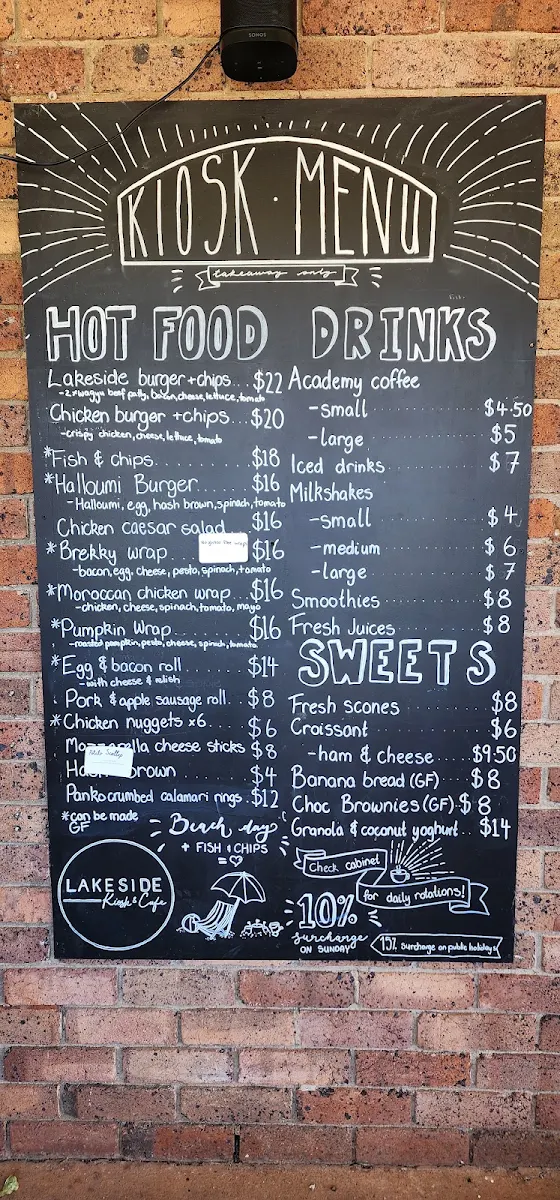 SONOS
KIOSK · MENU
takeaway only
HOT FOOD
Lakeside burger + chips... $22
- 2 x wagyu beef patty, bacon, cheese, lettuce, tomato
Chicken burger + chips... $20
- crispy chicken, cheese, lettuce, tomato
*Fish & chips $18
*Halloumi Burger $16
- Halloumi, egg, hash brown, spinach, tomato
Chicken caesar salad $16
*Brekky wrap $16
- bacon, egg, cheese, pesto, spinach, tomato
*Moroccan chicken wrap... $16
- chicken, cheese, spinach, tomato, mayo
*Pumpkin Wrap $16
- roasted pumpkin, pesto, cheese, spinach, tomato
*Egg & bacon roll $14
- with cheese & relish
Pork & apple sausage roll.. $8
*Chicken nuggets x6 $6
cheese sticks $8
brown $4
Panko crumbed calamari rings. $12
*can be made
GF
DRINKS
Academy coffee
- small $4.50
- large $5
Iced drinks $7
Milkshakes
- small $4
- medium $6
- large $7
Smoothies $8
Fresh Juices $8
SWEETS
Fresh scones $8
Croissant $6
- ham & cheese $9.50
Banana bread (GF) $8
Choc Brownies (GF) $8
Granola & coconut yoghurt.. $14
Beach day
+ FISH & CHIPS
= ♡
LAKESIDE
Kiosk & Cafe
Check cabinet
for daily rotations!
10%
surcharge
ON SUNDAY
15% surcharge on public holidays